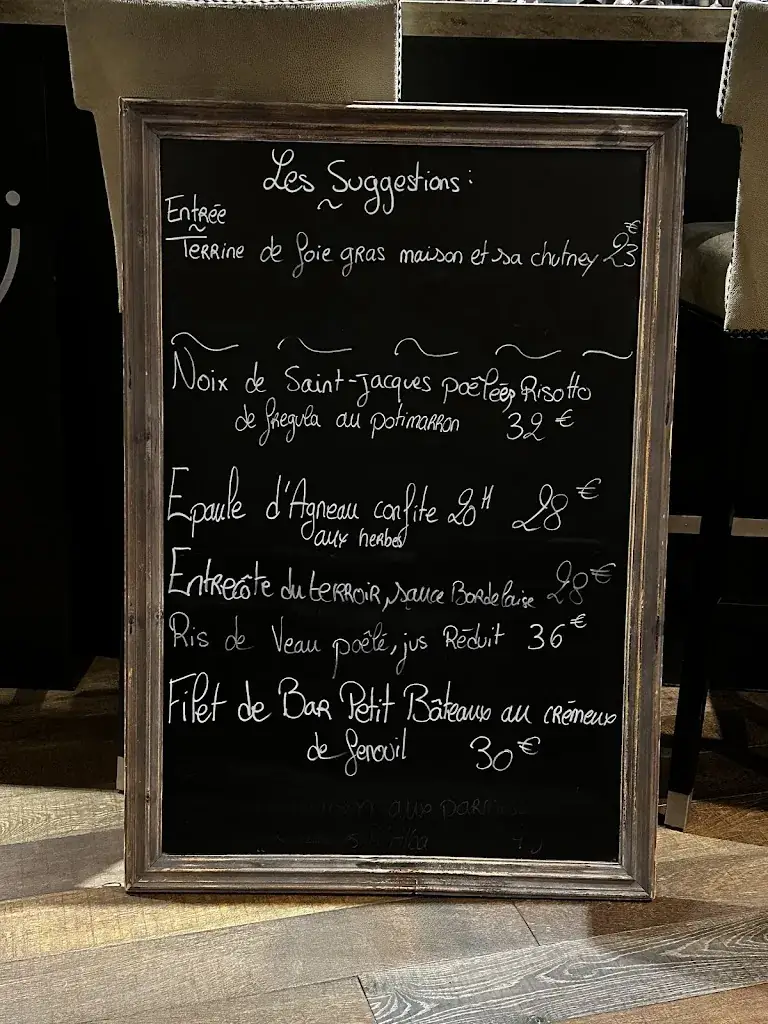 Les Suggestions :
Entrée
Terrine de foie gras maison et sa chutney 23€
Noix de Saint-Jacques poêlées, Risotto
de fregula au potimarron 32 €
Epaule d'Agneau confite 20H 28 €
aux herbes
Entrecôte du terroir, sauce Bordelaise 28€
Ris de Veau poêlé, jus Réduit 36€
Filet de Bar Petit Bâteaux au crémeux
de fenouil 30€
aux